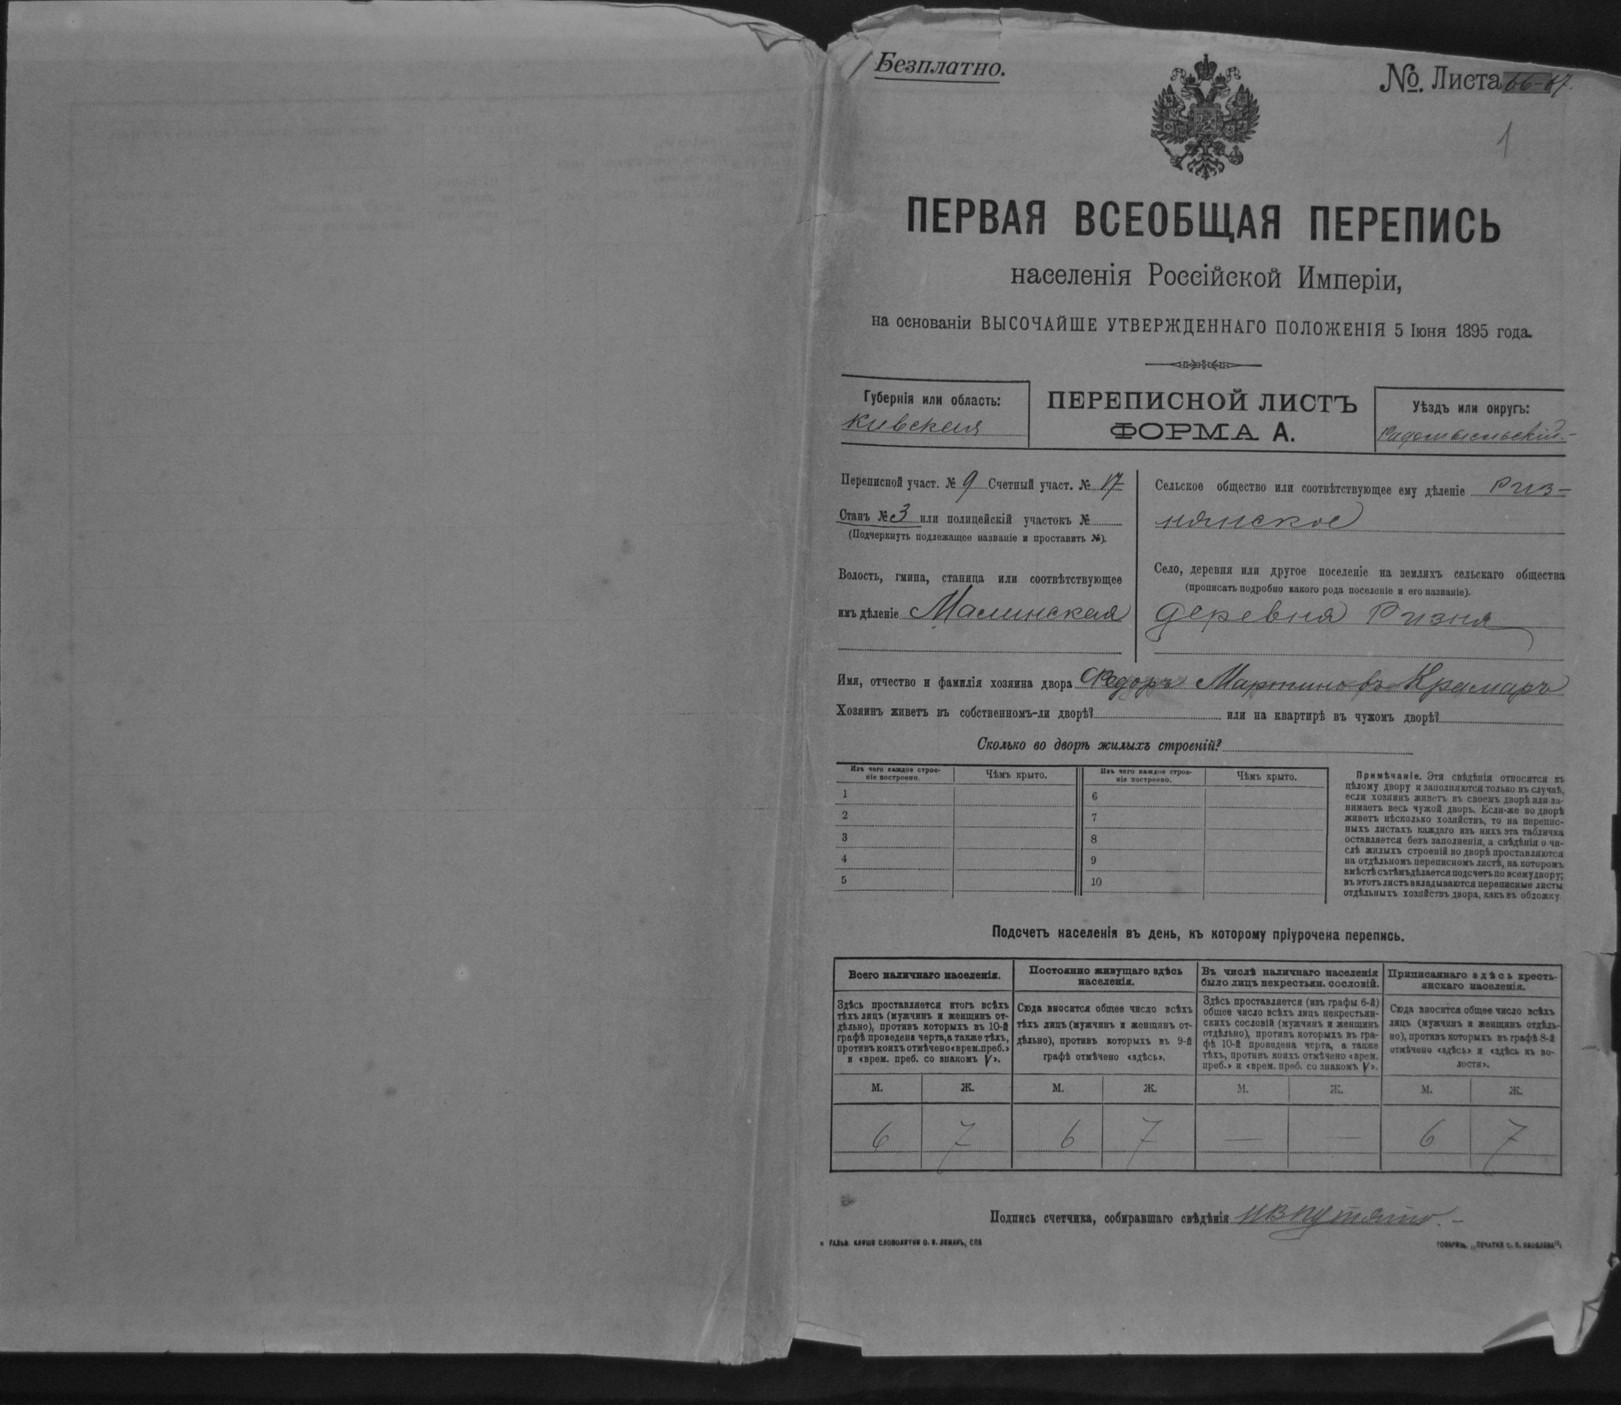 Безплатно.
№. Листа 66-67.
1
ПЕРВАЯ ВСЕОБЩАЯ ПЕРЕПИСЬ
населенія Россійской Имперіи,
на основаніи ВЫСОЧАЙШЕ УТВЕРЖДЕННАГО ПОЛОЖЕНІЯ 5 Іюня 1895 года.
Губернія или область:
Киевская
ПЕРЕПИСНОЙ ЛИСТЪ
ФОРМА А.
Уѣздъ или округъ:
Радомысльскій
Переписной участ. № 9 Счетный участ. № 17
Станъ № 3 или полицейскій участокъ №
(Подчеркнуть подлежащее названіе и проставить №).
Волость, гмина, станица или соотвѣтствующее
имъ дѣленіе Малинская
Сельское общество или соотвѣтствующее ему дѣленіе Риз-
нянское
Село, деревня или другое поселеніе на земляхъ сельскаго общества
(прописать подробно какого рода поселеніе и его названіе).
деревня Ризня
Имя, отчество и фамилія хозяина двора Федоръ Мартиновъ Крамаръ
Хозяинъ живетъ въ собственномъ-ли дворѣ? или на квартирѣ въ чужомъ дворѣ?
Сколько во дворѣ жилыхъ строеній?
Изъ чего каждое строе-
ніе построено.
Чѣмъ крыто.
1
2
3
4
5
Изъ чего каждое строе-
ніе построено.
Чѣмъ крыто.
6
7
8
9
10
Примѣчаніе. Эти свѣдѣнія относятся къ
цѣлому двору и заполняются только въ случаѣ,
если хозяинъ живетъ въ своемъ дворѣ или за-
нимаетъ весь чужой дворъ. Если-же во дворѣ
живетъ нѣсколько хозяйствъ, то на перепис-
ныхъ листахъ каждаго изъ нихъ эта табличка
оставляется безъ заполненія, а свѣдѣнія о чи-
слѣ жилыхъ строеній во дворѣ проставляются
на отдѣльномъ переписномъ листѣ, на которомъ
вмѣстѣ съ тѣмъ дѣлается подсчетъ по всему двору;
въ этотъ листъ вкладываются переписные листы
отдѣльныхъ хозяйствъ двора, какъ въ обложку.
Подсчетъ населенія въ день, къ которому пріурочена перепись.
Всего наличнаго населенія.
Здѣсь проставляется итогъ всѣхъ
тѣхъ лицъ (мужчинъ и женщинъ от-
дѣльно), противъ которыхъ въ 10-й
графѣ проведена черта, а также тѣхъ,
противъ коихъ отмѣчено «врем. преб.»
и «врем. преб. со знакомъ V».
М. Ж.
6 7
Постоянно живущаго здѣсь
населенія.
Сюда вносится общее число всѣхъ
тѣхъ лицъ (мужчинъ и женщинъ от-
дѣльно), противъ которыхъ въ 9-й
графѣ отмѣчено «здѣсь».
М. Ж.
6 7
Въ числѣ наличнаго населенія
было лицъ некрестьян. сословій.
Здѣсь проставляется (изъ графы 6-й)
общее число всѣхъ лицъ некрестьян-
скихъ сословій (мужчинъ и женщинъ
отдѣльно), противъ которыхъ въ гра-
фѣ 10-й проведена черта, а также
тѣхъ, противъ коихъ отмѣчено «врем.
преб.» и «врем. преб. со знакомъ V».
М. Ж.
— —
Приписаннаго здѣсь кресть-
янскаго населенія.
Сюда вносится общее число всѣхъ
лицъ (мужчинъ и женщинъ отдѣль-
но), противъ которыхъ въ графѣ 8-й
отмѣчено «здѣсь» и «здѣсь къ во-
лости».
М. Ж.
6 7
Подпись счетчика, собиравшаго свѣдѣнія
ГАЛЬВ. КЛИШЕ СЛОВОЛИТНИ О. И. ЛЕМАНЪ, СПБ